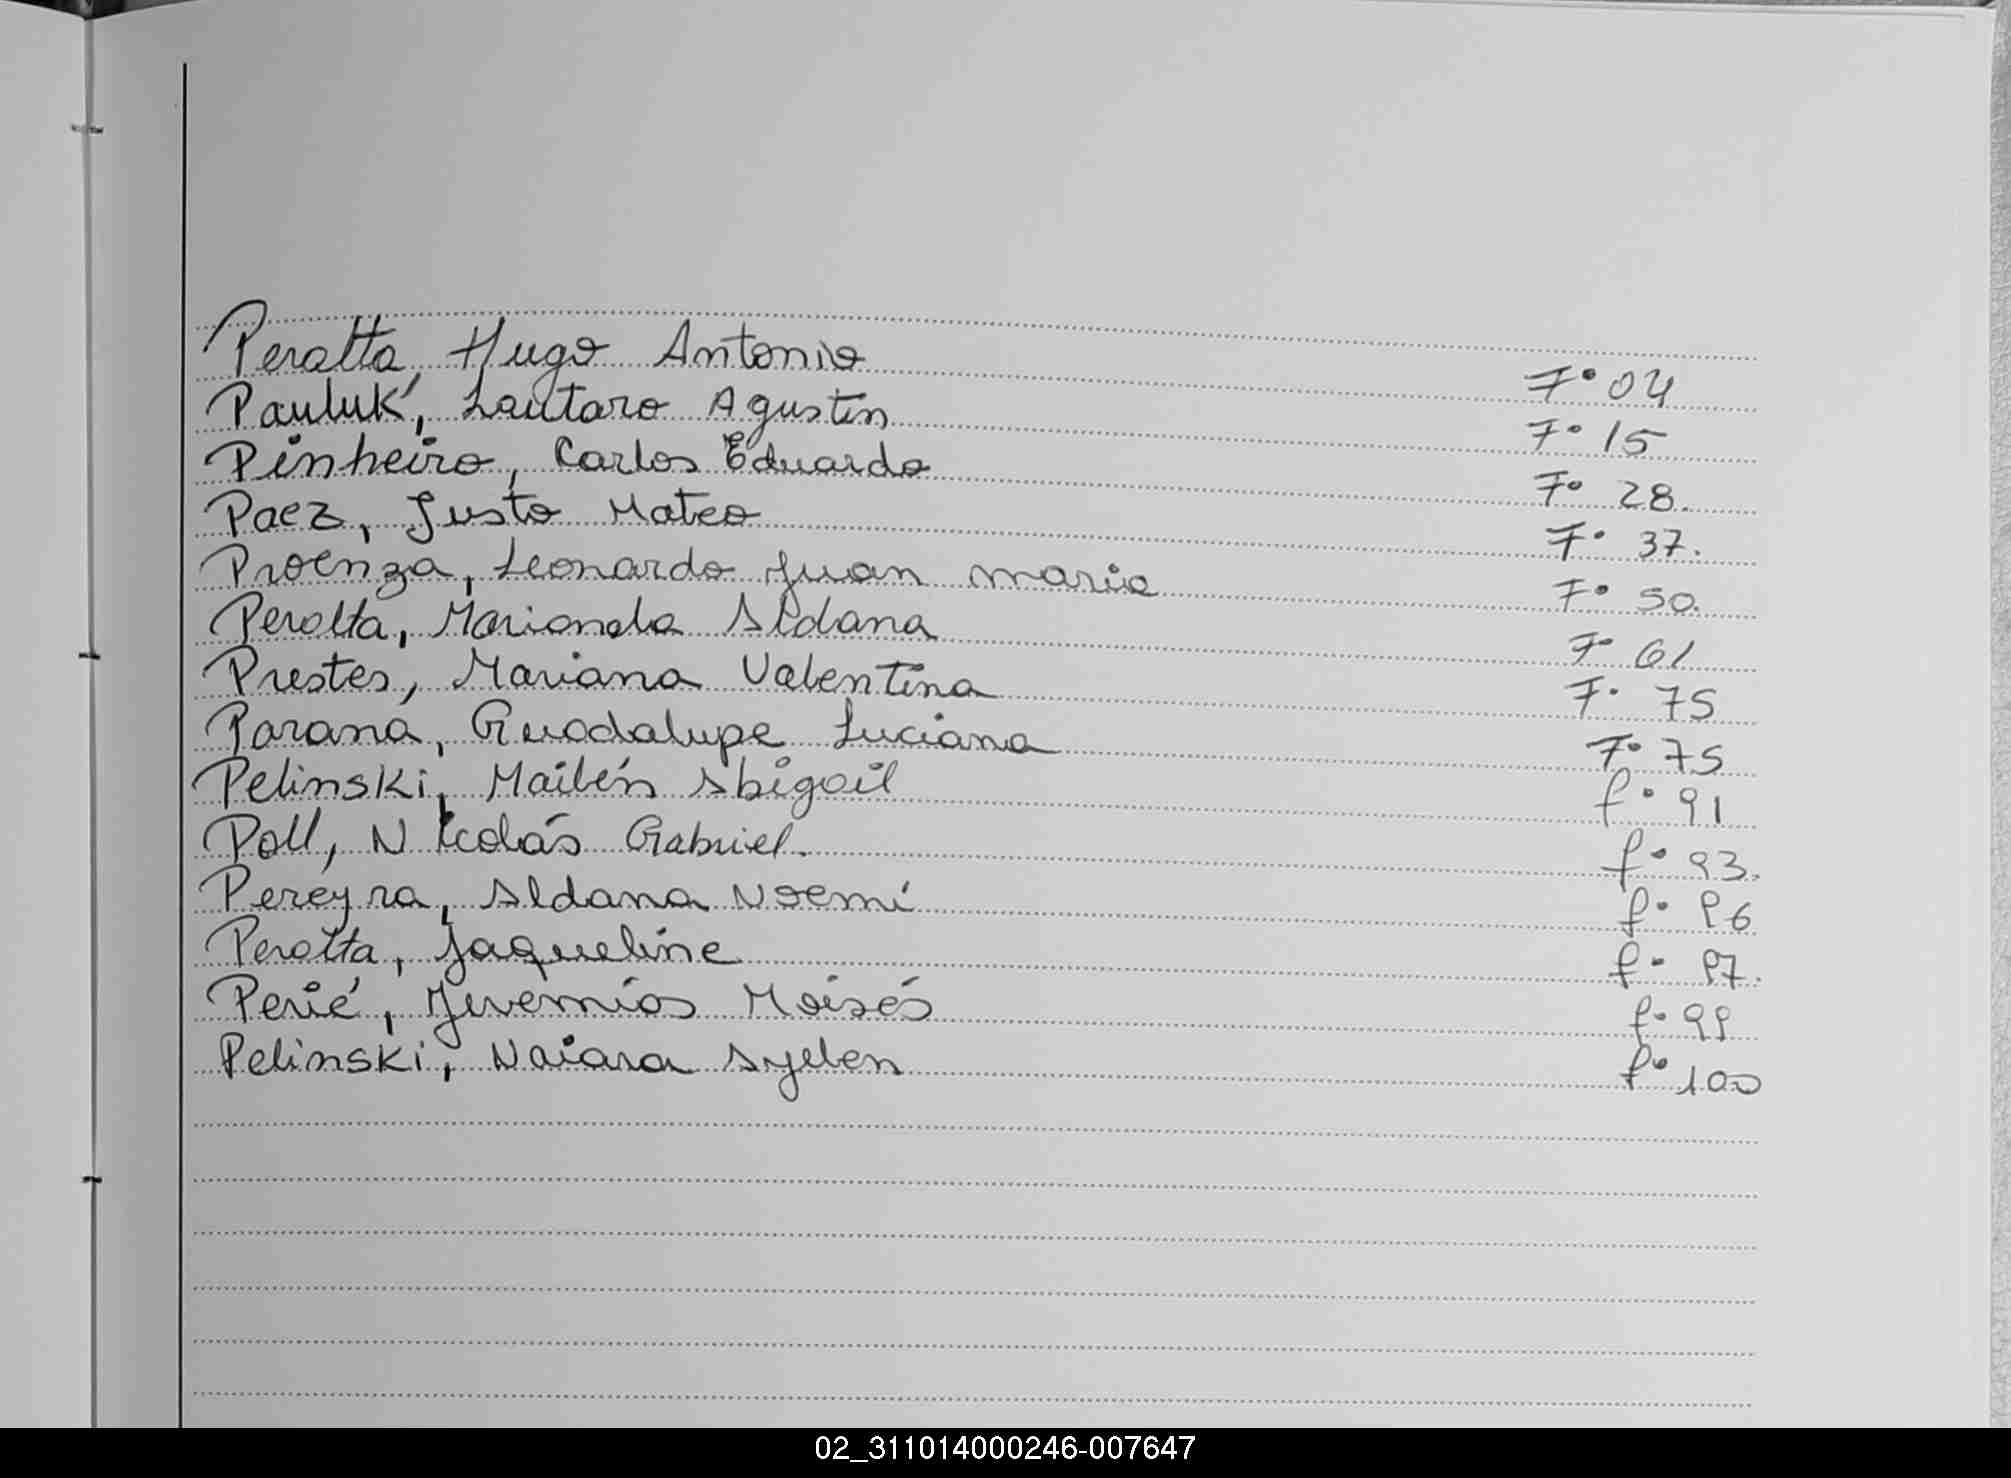 Peralta, Hugo Antonio F° 04
Pauluk, Lautaro Agustin F° 15
Pinheiro, Carlos Eduardo F° 28.
Paez, Justo Mateo F° 37.
Proenza, Leonardo Juan maria F° 50.
Peralta, Marianela Aldana F° 61
Prestes, Mariana Valentina F° 75
Parana, Guadalupe Luciana F° 75
Pelinski, Mailén Abigail f° 91
Poll, Nicolás Gabriel. f° 93.
Pereyra, Aldana Noemí f° 96
Peralta, Jaqueline f° 97.
Perié, Jeremías Moisés f° 99
Pelinski, Naiara Ayelen f° 100
02_311014000246-007647